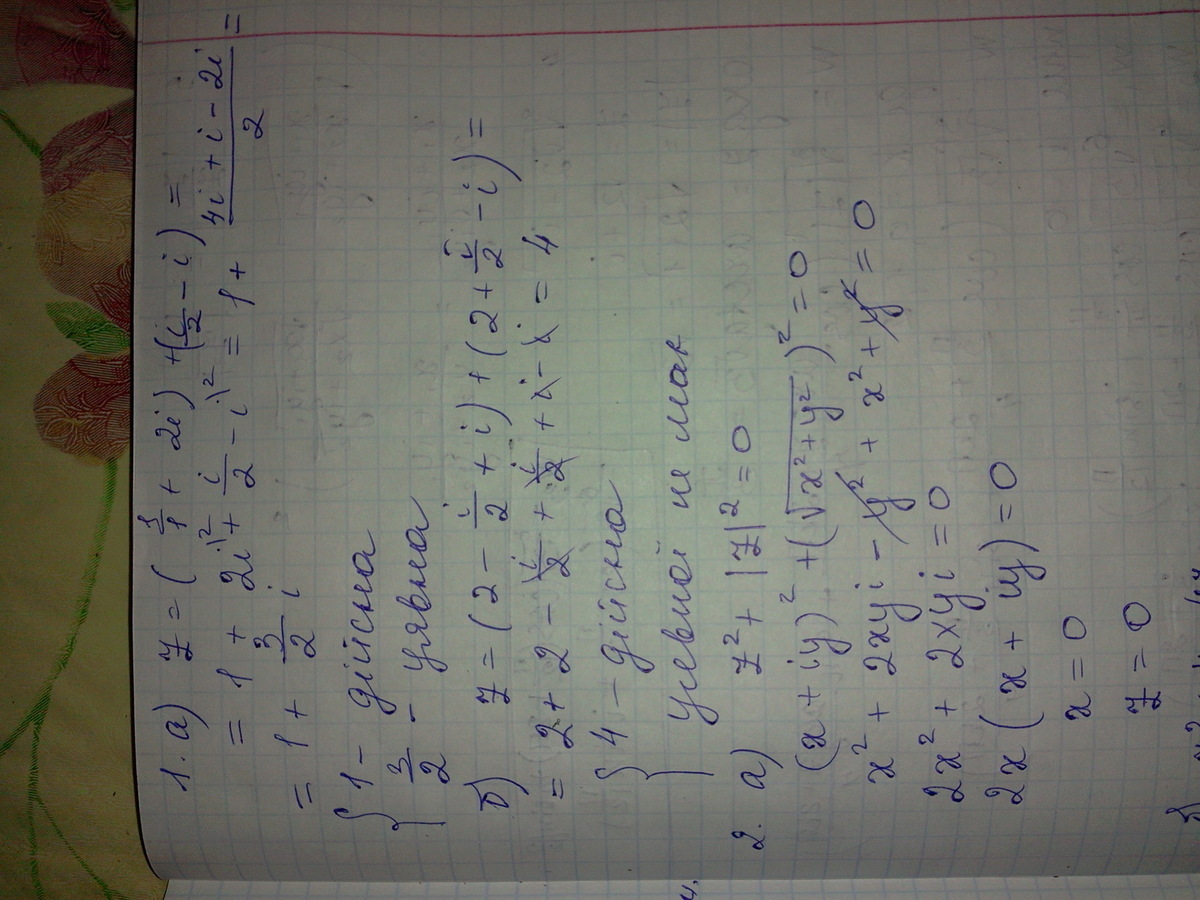 1. а) z = ( 1/1 + 2i) + (i/2 - i) =
= 1 + 2i\2 + i/2 - i\2 = 1 + (4i + i - 2i)/2 =
= 1 + 3/2 i
{ 1 - дійсна
3/2 - уявна
б) z = (2 - i/2 + i) + (2 + i/2 - i) =
= 2 + 2 - i/2 + i/2 + i - i = 4
{ 4 - дійсна
уявной не має
2. а) z² + |z|² = 0
(x + iy)² + (√x² + y²)² = 0
x² + 2xyi - y² + x² + y² = 0
2x² + 2xyi = 0
2x (x + iy) = 0
x = 0
z = 0